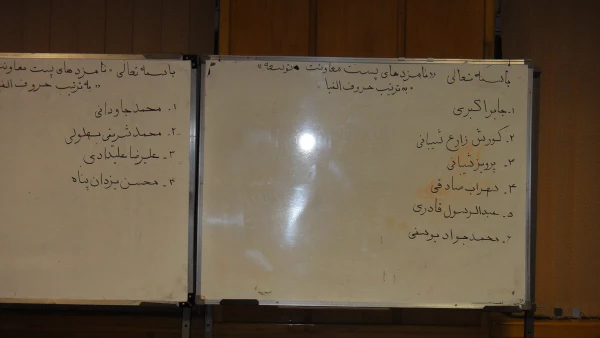 باسمه تعالی "نامزدهای پست معاونت توسعه"
"به ترتیب حروف الفبا"
۱- جابر اکبری
۲- کورش زارع شیبانی
۳- پرویز شیبانی
۴- سهراب صادقی
۵- عبدالرسول قادری
۶- محمدجواد یوسفی
باسمه تعالی "نامزدهای پست معاونت
"به ترتیب حروف الفبا"
۱- محمد جاودانی
۲- محمد شریفی بهلولی
۳- علیرضا علیدادی
۴- محسن یزدان پناه